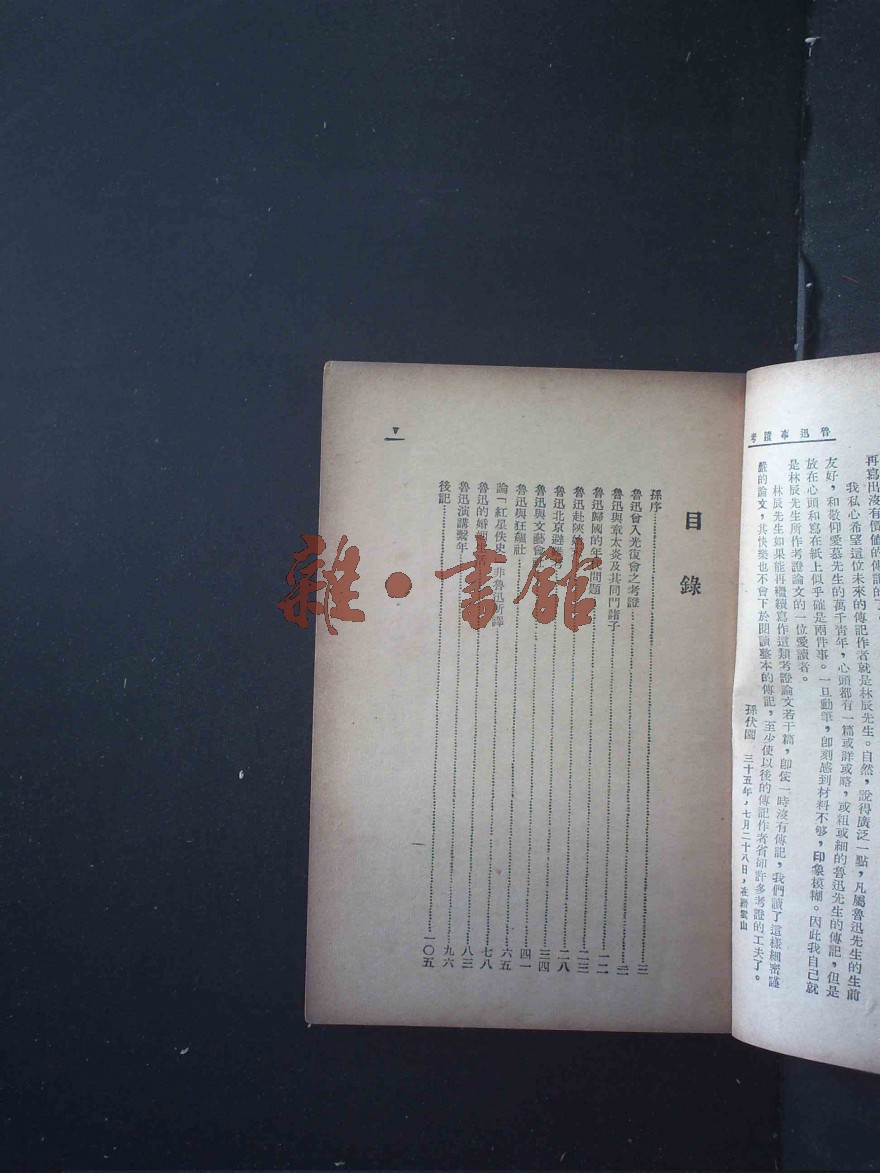 魯迅事蹟考
再寫出沒有價值的傳記的了。
我私心希望這位未來的傳記作者就是林辰先生。自然,說得廣泛一點,凡屬魯迅先生的生前
友好,和敬仰愛慕先生的萬千青年,心頭都有一篇或詳或略,或粗或細的魯迅先生的傳記,但是
放在心頭和寫在紙上似乎確是兩件事。一旦動筆,卽刻感到材料不够,印象模糊。因此我自己就
是林辰先生所作考證論文的一位愛讀者。
林辰先生如果能再繼續寫作這類考證論文若干篇,卽使一時沒有傳記,我們讀了這樣細密謹
嚴的論文,其快樂也不會下於閱讀整本的傳記,至少使以後的傳記作者省卻許多考證的工夫了。
孫伏園 三十五年,七月二十八日,在縉雲山
目錄
孫序……三
魯迅曾入光復會之考證……
魯迅與章太炎及其同門諸子……一二
魯迅歸國的年代問題……二三
魯迅赴陝……二八
魯迅北京避難……三四
魯迅與文藝會……四一
魯迅與狂飆社……六五
論「紅星佚史」非魯迅所譯……七八
魯迅的婚姻……八三
魯迅演講繫年……九六
後記……一〇五
雜·書館